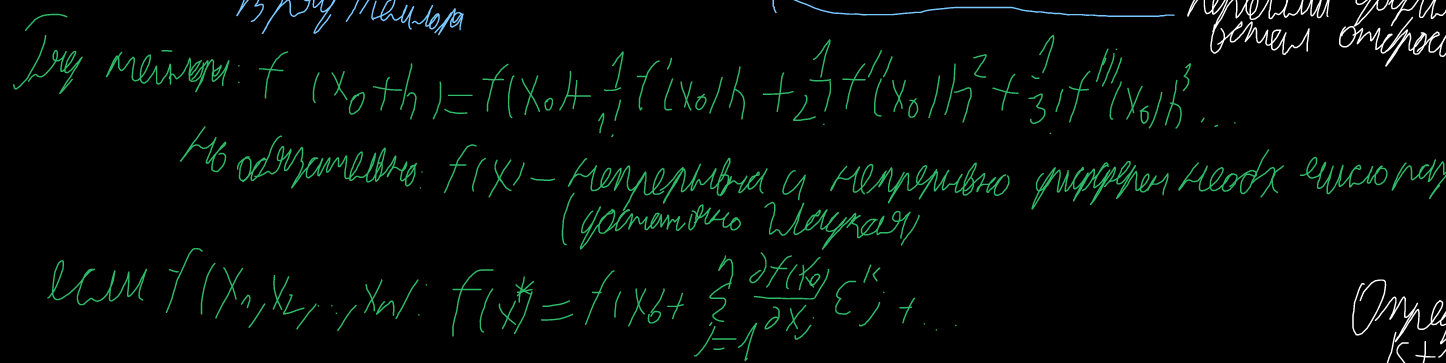 в ряд Тейлора
Ряд Тейлора: f(x₀+h)=f(x₀)+\frac{1}{1!}f'(x₀)h+\frac{1}{2!}f''(x₀)h²+\frac{1}{3!}f'''(x₀)h³...
Но обязательно: f(x) – непрерывна и непрерывно дифферен необх число раз
(достаточно гладкая)
если f(x₁,x₂,...,xₙ): f(x*)=f(x₀)+\sum_{j=1}^{n}\frac{∂f(x₀)}{∂x_j}ε_j^k+...